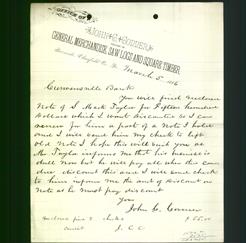 OFFICE OF
John C. Conner,
GENERAL MERCHANDISE, SAW LOGS AND SQUARE TIMBER.
March 5 1886
Curwensville Bank
You will find inclosed
Note of J. Mack Taylor for Fifteen hundred
Dollars which I want Discounted so I can
renew for him a part of a Note I hold
and I will send him my check to lift
old Note I hope this will suit you as
Mr Taylor informs me that his business is
dull now but he will pay all when the came
due discount this and I will send check
to him inform me the amt of Discount on
Note as he must pay discount
Yours
John C. Conner
checks
J. C. C.